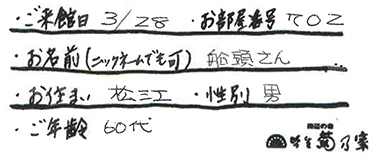 ・ご来館日 3/28 ・お部屋番号 702
・お名前(ニックネームでも可) 船頭さん
・お住まい 松江 ・性別 男
・ご年齢 60代
湖辺の宿
菊乃家